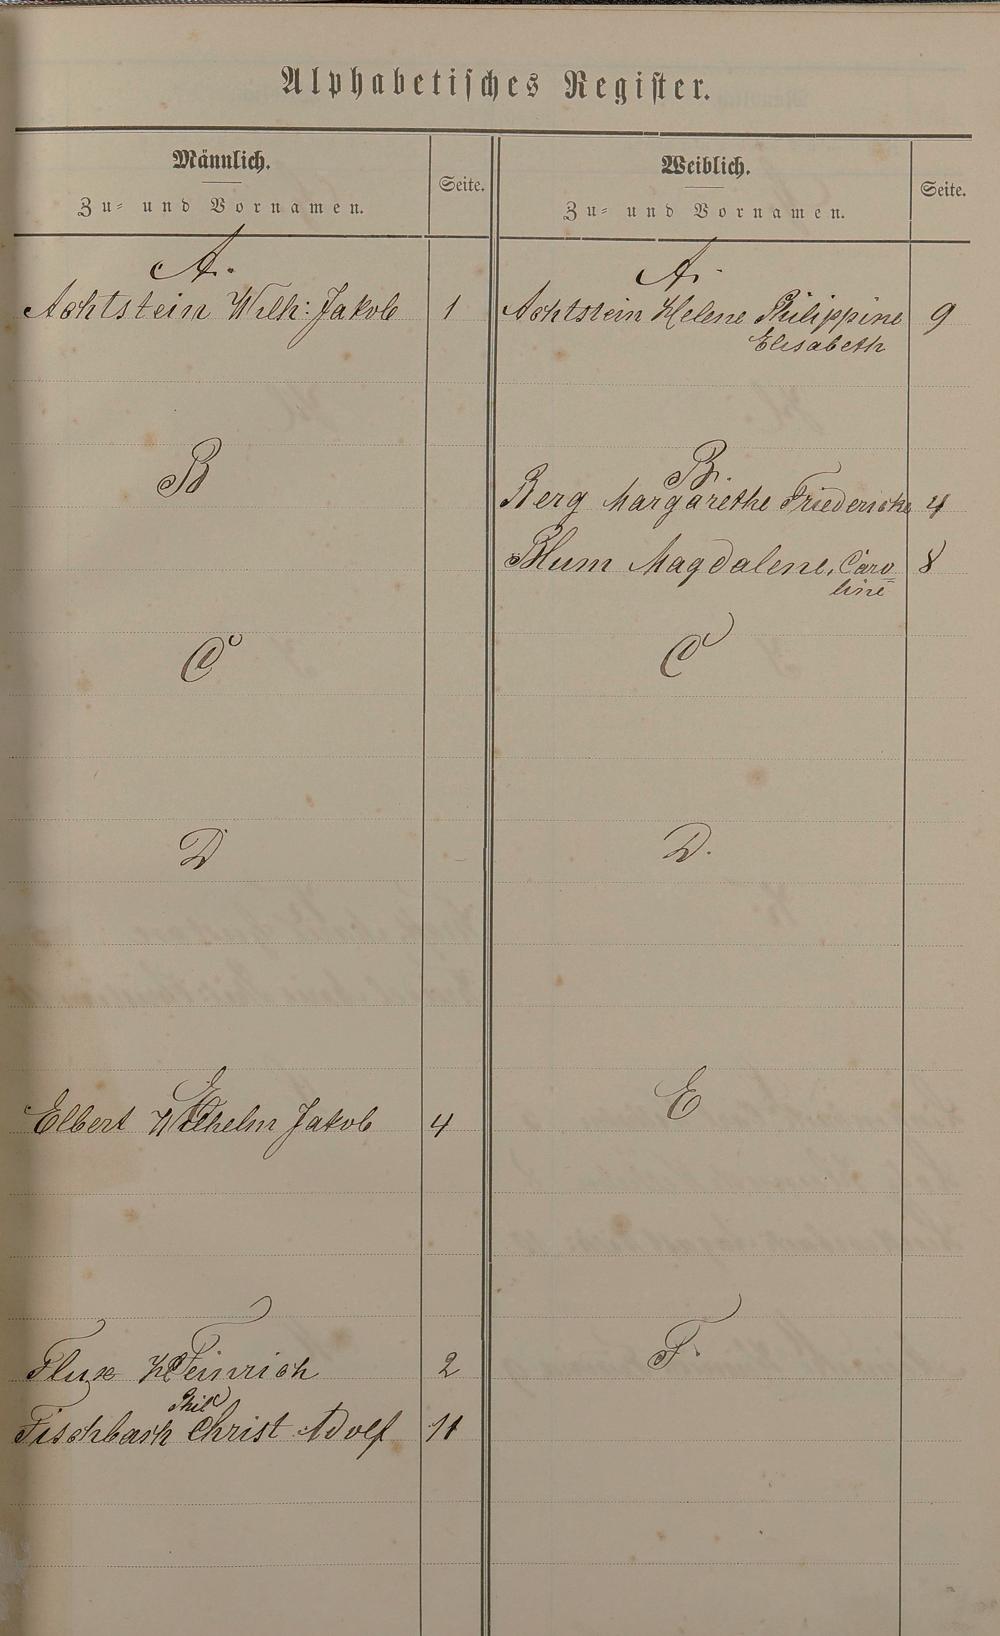 Alphabetisches Register.
Männlich.
Zu- und Vornamen.
Seite.
Weiblich.
Zu- und Vornamen.
Seite.
A.
Achtstein Wilh: Jakob 1
B
C
D
E
Elbert Wilhelm Jakob 4
F
Flux Heinrich 2
Phil
Fischbach Christ Adolf 11
A.
Achtstein Helene Philippine 9
Elisabeth
B.
Berg Margarethe Friedericke 4
Blum Magdalene, Caro= 8
line
C
D.
E
F.